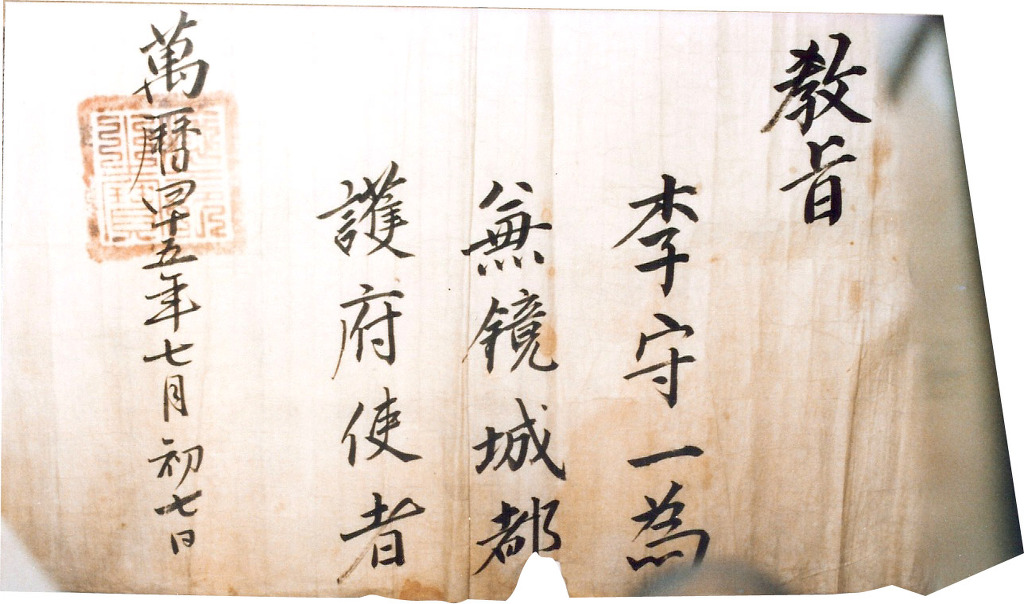 教旨
李守一為
兼鏡城都
護府使者
萬曆四十五年七月初七日